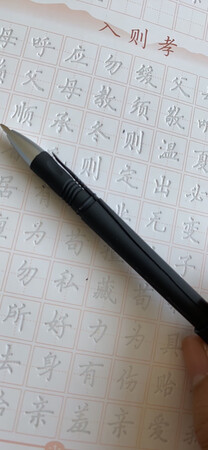 入则孝
母呼应勿缓父
父母教须敬
顺承冬则温夏
则定出必
居业无变
为苟子
勿私藏苟
所好力为具
去身有伤贻
亲羞亲爱